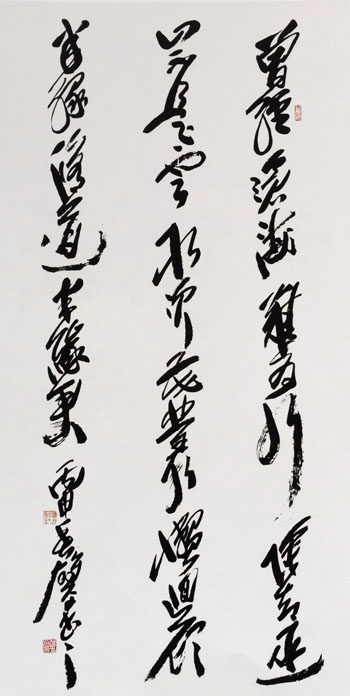 曾經滄海難為水除却巫
山不是雲取次花叢懶迴顧
半緣修道半緣君雷